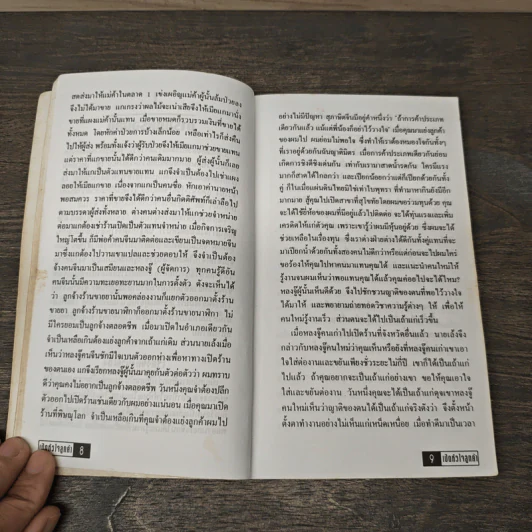 สดส่งมาให้แม่ค้าในตลาด 1 เข่งเผอิญแม่ค้าผู้นั้นล้มป่วยลง
จึงไม่ได้มาขาย แกเกรงว่าผลไม้จะเน่าเสียจึงให้เมียแกมานั่ง
ขายที่แผงแม่ค้านั้นแทน เมื่อขายหมดก็รวบรวมเงินที่ขายได้
ทั้งหมด โดยหักค่าป่วยการบ้างเล็กน้อย เหลือเท่าไรก็ส่งคืน
ไปให้ผู้ส่ง พร้อมทั้งแจ้งว่าผู้รับป่วยจึงให้เมียแกมาช่วยขายแทน
แต่ราคาที่แกขายนั้นได้ดีกว่าคนเดิมมากมาย ผู้ส่งผู้นั้นก็เลย
ส่งมาให้แกเป็นตัวแทนขายแทน แกจึงจำเป็นต้องไปเช่าแผง
ลอยให้เมียแกขาย เนื่องจากแกเป็นคนซื่อ หักเอาค่านายหน้า
พอสมควร ราคาที่ขายจึงได้ดีกว่าคนอื่นกิตติศัพท์ก็เล่าลือไป
ตามบรรดาผู้ส่งทั้งหลาย ต่างคนต่างส่งมาให้แกช่วยจำหน่าย
ต่อมาแกต้องเช่าร้านเปิดเป็นตัวแทนจำหน่าย เมื่อกิจการเจริญ
ใหญ่โตขึ้น ก็มีพ่อค้าคนจีนมาติดต่อและเขียนเป็นจดหมายจีน
มาซึ่งแกต้องไปวานเขาแปลและช่วยตอบให้ จึงจำเป็นต้อง
จ้างคนจีนมาเป็นเสมียนและหลงจู๊ (ผู้จัดการ) ทุกคนรู้ดีอัน
คนจีนนั้นมีความทะเยอทะยานมากในการตั้งตัว ดังจะเห็นได้
ว่า ลูกจ้างร้านขายยานั้นพอคล่องงานก็แยกตัวออกมาตั้งร้าน
ขายยา ลูกจ้างร้านนาฬิกาก็ออกมาตั้งร้านขายนาฬิกา ไม่
มีใครยอมเป็นลูกจ้างตลอดชีพ เมื่อมาเปิดในอำเภอเดียวกัน
จำเป็นเหลือเกินต้องแย่งลูกค้าจากเถ้าแก่เดิม ส่วนนายเล้งเมื่อ
เห็นว่าหลงจู๊คนจีนชักมีใจเบนตัวออกห่างเพื่อหาทางเปิดร้าน
ของตนเอง แกจึงเรียกหลงจู๊ผู้นั้นมาคุยกันตัวต่อตัวว่า ผมทราบ
ดีว่าคุณคงไม่อยากเป็นลูกจ้างตลอดชีพ วันหนึ่งคุณจำต้องปลีก
ตัวออกไปเปิดร้านเช่นเดียวกับผมอย่างแน่นอน เมื่อคุณมาเปิด
ร้านที่พิษณุโลก จำเป็นเหลือเกินที่คุณจำต้องแย่งลูกค้าผมไป
8
อย่างไม่มีปัญหา สุภาษิตจีนมีอยู่คำหนึ่งว่า "ถ้าการค้าประเภท
เดียวกันแล้ว แม้แต่พี่น้องก็อย่าไว้วางใจ" เมื่อคุณมาแย่งลูกค้า
ของผมไป ผมย่อมไม่พอใจ ซึ่งทำให้เราต้องหมองใจกันทั้งๆ
ที่เราอยู่ด้วยกันฉันญาติมิตร เมื่อการค้าประเภทเดียวกันย่อม
เกิดการชิงดีชิงเด่นกัน เท่ากับเรามาสาดน้ำรดกัน ใครมีแรง
มากก็สาดได้ไกลกว่า และเปียกน้อยกว่าแต่ก็เปียกด้วยกันทั้ง
คู่ ก็ในเมื่อแผ่นดินไทยมิใช่เท่าใบพุทรา ที่ทำมาหากินยังมีอีก
มากมาย สู้คุณไปเปิดสาขาที่สุโขทัยโดยผมขอร่วมทุนด้วย คุณ
จะได้ใช้ยี่ห้อของผมที่มีอยู่แล้วไปติดต่อ จะได้ทุ่นแรงและเพิ่ม
เครดิตให้แก่ตัวคุณ เพราะเขารู้ว่าผมมีหุ้นอยู่ด้วย ซึ่งผมจะได้
ช่วยเหลือในเรื่องทุน ซึ่งเราต่างฝ่ายต่างได้ดีกันทั้งคู่แทนที่จะ
มาเปียกน้ำด้วยกันทั้งสองคนไม่ดีกว่าหรือแต่ก่อนจะไปผมใคร่
ขอร้องให้คุณไปหาคนมาแทนคุณได้ และแนะนำคนใหม่ให้
รู้งานจนผมเห็นว่าพอแทนคุณได้แล้วคุณค่อยไปจะได้ไหม?
หลงจู๊ผู้นั้นก็เห็นดีด้วย จึงไปชักชวนญาติของตนที่พอไว้วางใจ
ได้มาให้ และพยายามถ่ายทอดวิชาความรู้ต่างๆ ให้ เพื่อให้
คนใหม่รู้งานเร็ว ส่วนตนจะได้ไปเป็นเถ้าแก่เร็วขึ้น
เมื่อหลงจู๊คนเก่าไปเปิดร้านที่จังหวัดอื่นแล้ว นายเล้งจึง
กล่าวกับหลงจู๊ใหม่ว่าคุณเห็นหรือยังที่หลงจู๊คนเก่าเขาเอา
ใจใส่ต่องานและขยันเพียงชั่วระยะไม่กี่ปี เขาก็ได้เป็นเถ้าแก่
ไปแล้ว ถ้าคุณอยากจะเป็นเถ้าแก่อย่างเขา ขอให้คุณเอาใจ
ใส่และขยันต่องาน วันหนึ่งคุณจะได้เป็นเถ้าแก่ดุจเขาหลงจู๊
คนใหม่เห็นว่าญาติของตนได้เป็นเถ้าแก่จริงดังว่า จึงตั้งหน้า
ตั้งตาทำงานอย่างไม่เห็นแก่เหน็ดเหนื่อย เมื่อทำดีมาเป็นเวลา
9